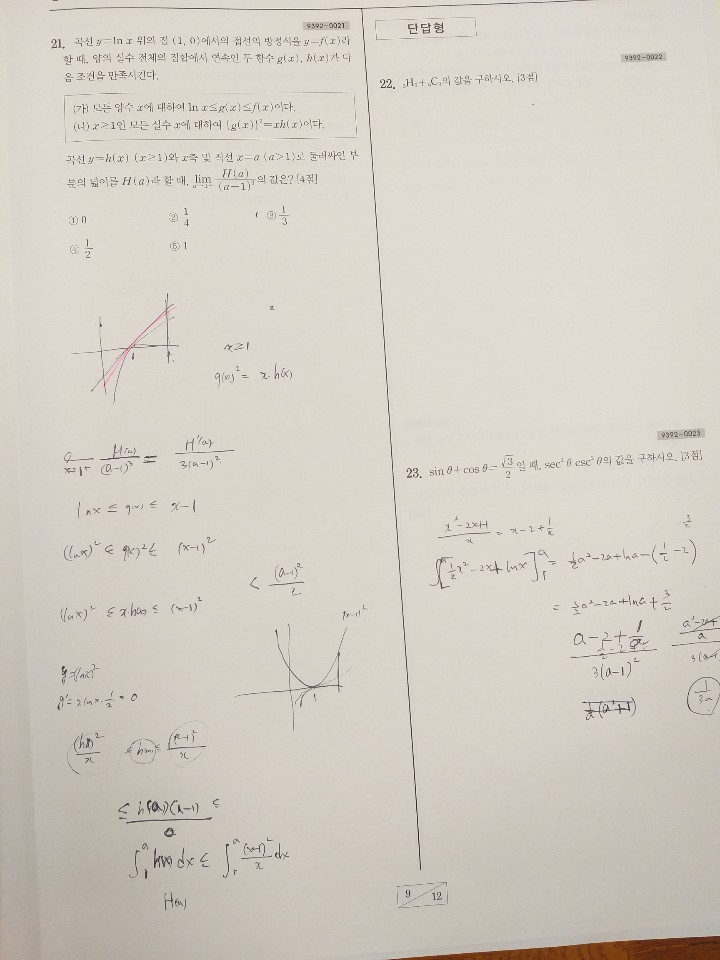 9392-0021
21. 곡선 y=ln x 위의 점 (1, 0)에서의 접선의 방정식을 y=f(x)라
할 때, 양의 실수 전체의 집합에서 연속인 두 함수 g(x), h(x)가 다
음 조건을 만족시킨다.
(가) 모든 양수 x에 대하여 ln x≤g(x)≤f(x)이다.
(나) x≥1인 모든 실수 x에 대하여 {g(x)}²=xh(x)이다.
곡선 y=h(x) (x≥1)와 x축 및 직선 x=a (a>1)로 둘러싸인 부
분의 넓이를 H(a)라 할 때, lim H(a)/(a-1)³의 값은? [4점]
① 0 ② 1/4 ③ 1/3
④ 1/2 ⑤ 1
x≥1
g(x)² = x·h(x)
H(a)/(a-1)³ = H'(a)/3(a-1)²
lnx ≤ g(x) ≤ x-1
(lnx)² ≤ g(x)² ≤ (x-1)²
< (a-1)²/2
(lnx)² ≤ x·h(x) ≤ (x-1)²
(x-1)²
y=(lnx)²
(x-1)²/x
∫₁ᵃ h(x) dx ≤ ∫₁ᵃ (x-1)²/x dx
H(a)
단답형
9392-0022
22. 의 값을 구하시오. [3점]
9392-0023
23. sin θ+cos θ=√3/2일 때, sec² θ csc² θ의 값을 구하시오. [3점]
x²-2x+1/x = x-2+1/x
[½x²-2x+lnx]₁ᵃ = ½a²-2a+lna-(½-2)
= ½a²-2a+lna+3/2
a-2+1/a
3(a-1)²
1/3a
9 12